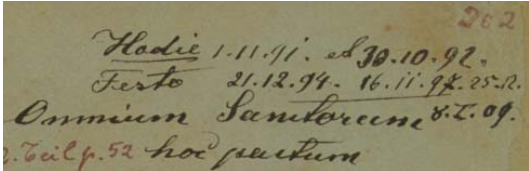 Do 2
Hodie 1.11.91. et 30.10.92.
Festo 21.12.94. 16.11.97. 25.12.
Omnium Sanctorum 8.I.09.
2. Teil p. 52 hoc pactum